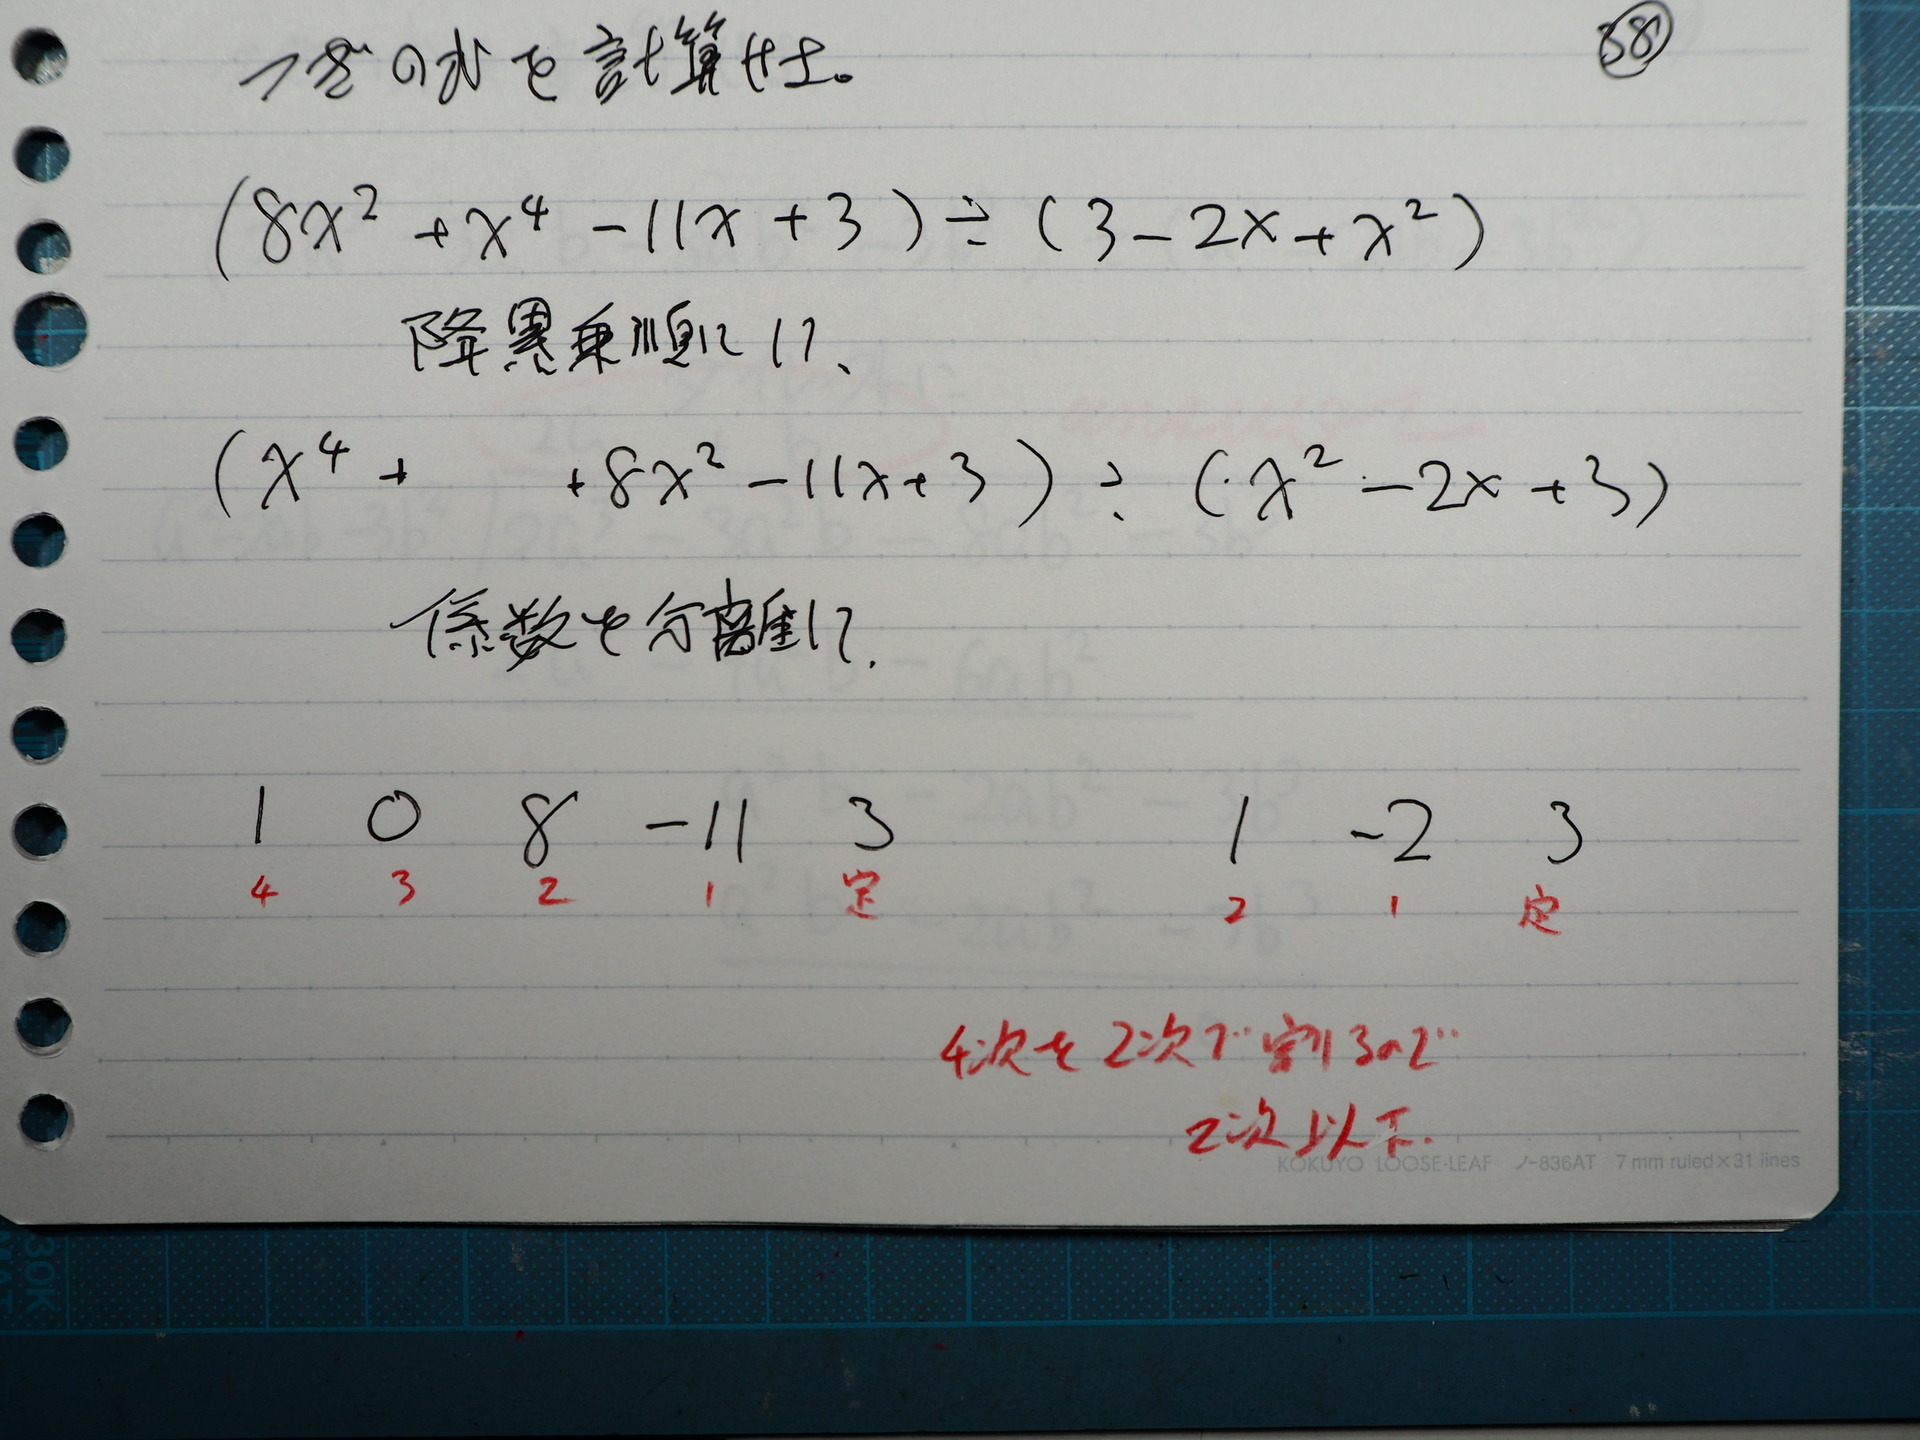 次の式を計算せよ。
38
(8x² + x⁴ - 11x + 3) ÷ (3 - 2x + x²)
降累乗順にして、
(x⁴ + +8x² - 11x + 3) ÷ (x² - 2x + 3)
係数を分離して、
1 0 8 -11 3 1 -2 3
4 3 2 1 定 2 1 定
4次を2次で割るので
2次以下.
KOKUYO LOOSE-LEAF ノ-836AT 7 mm ruled×31 lines
30K